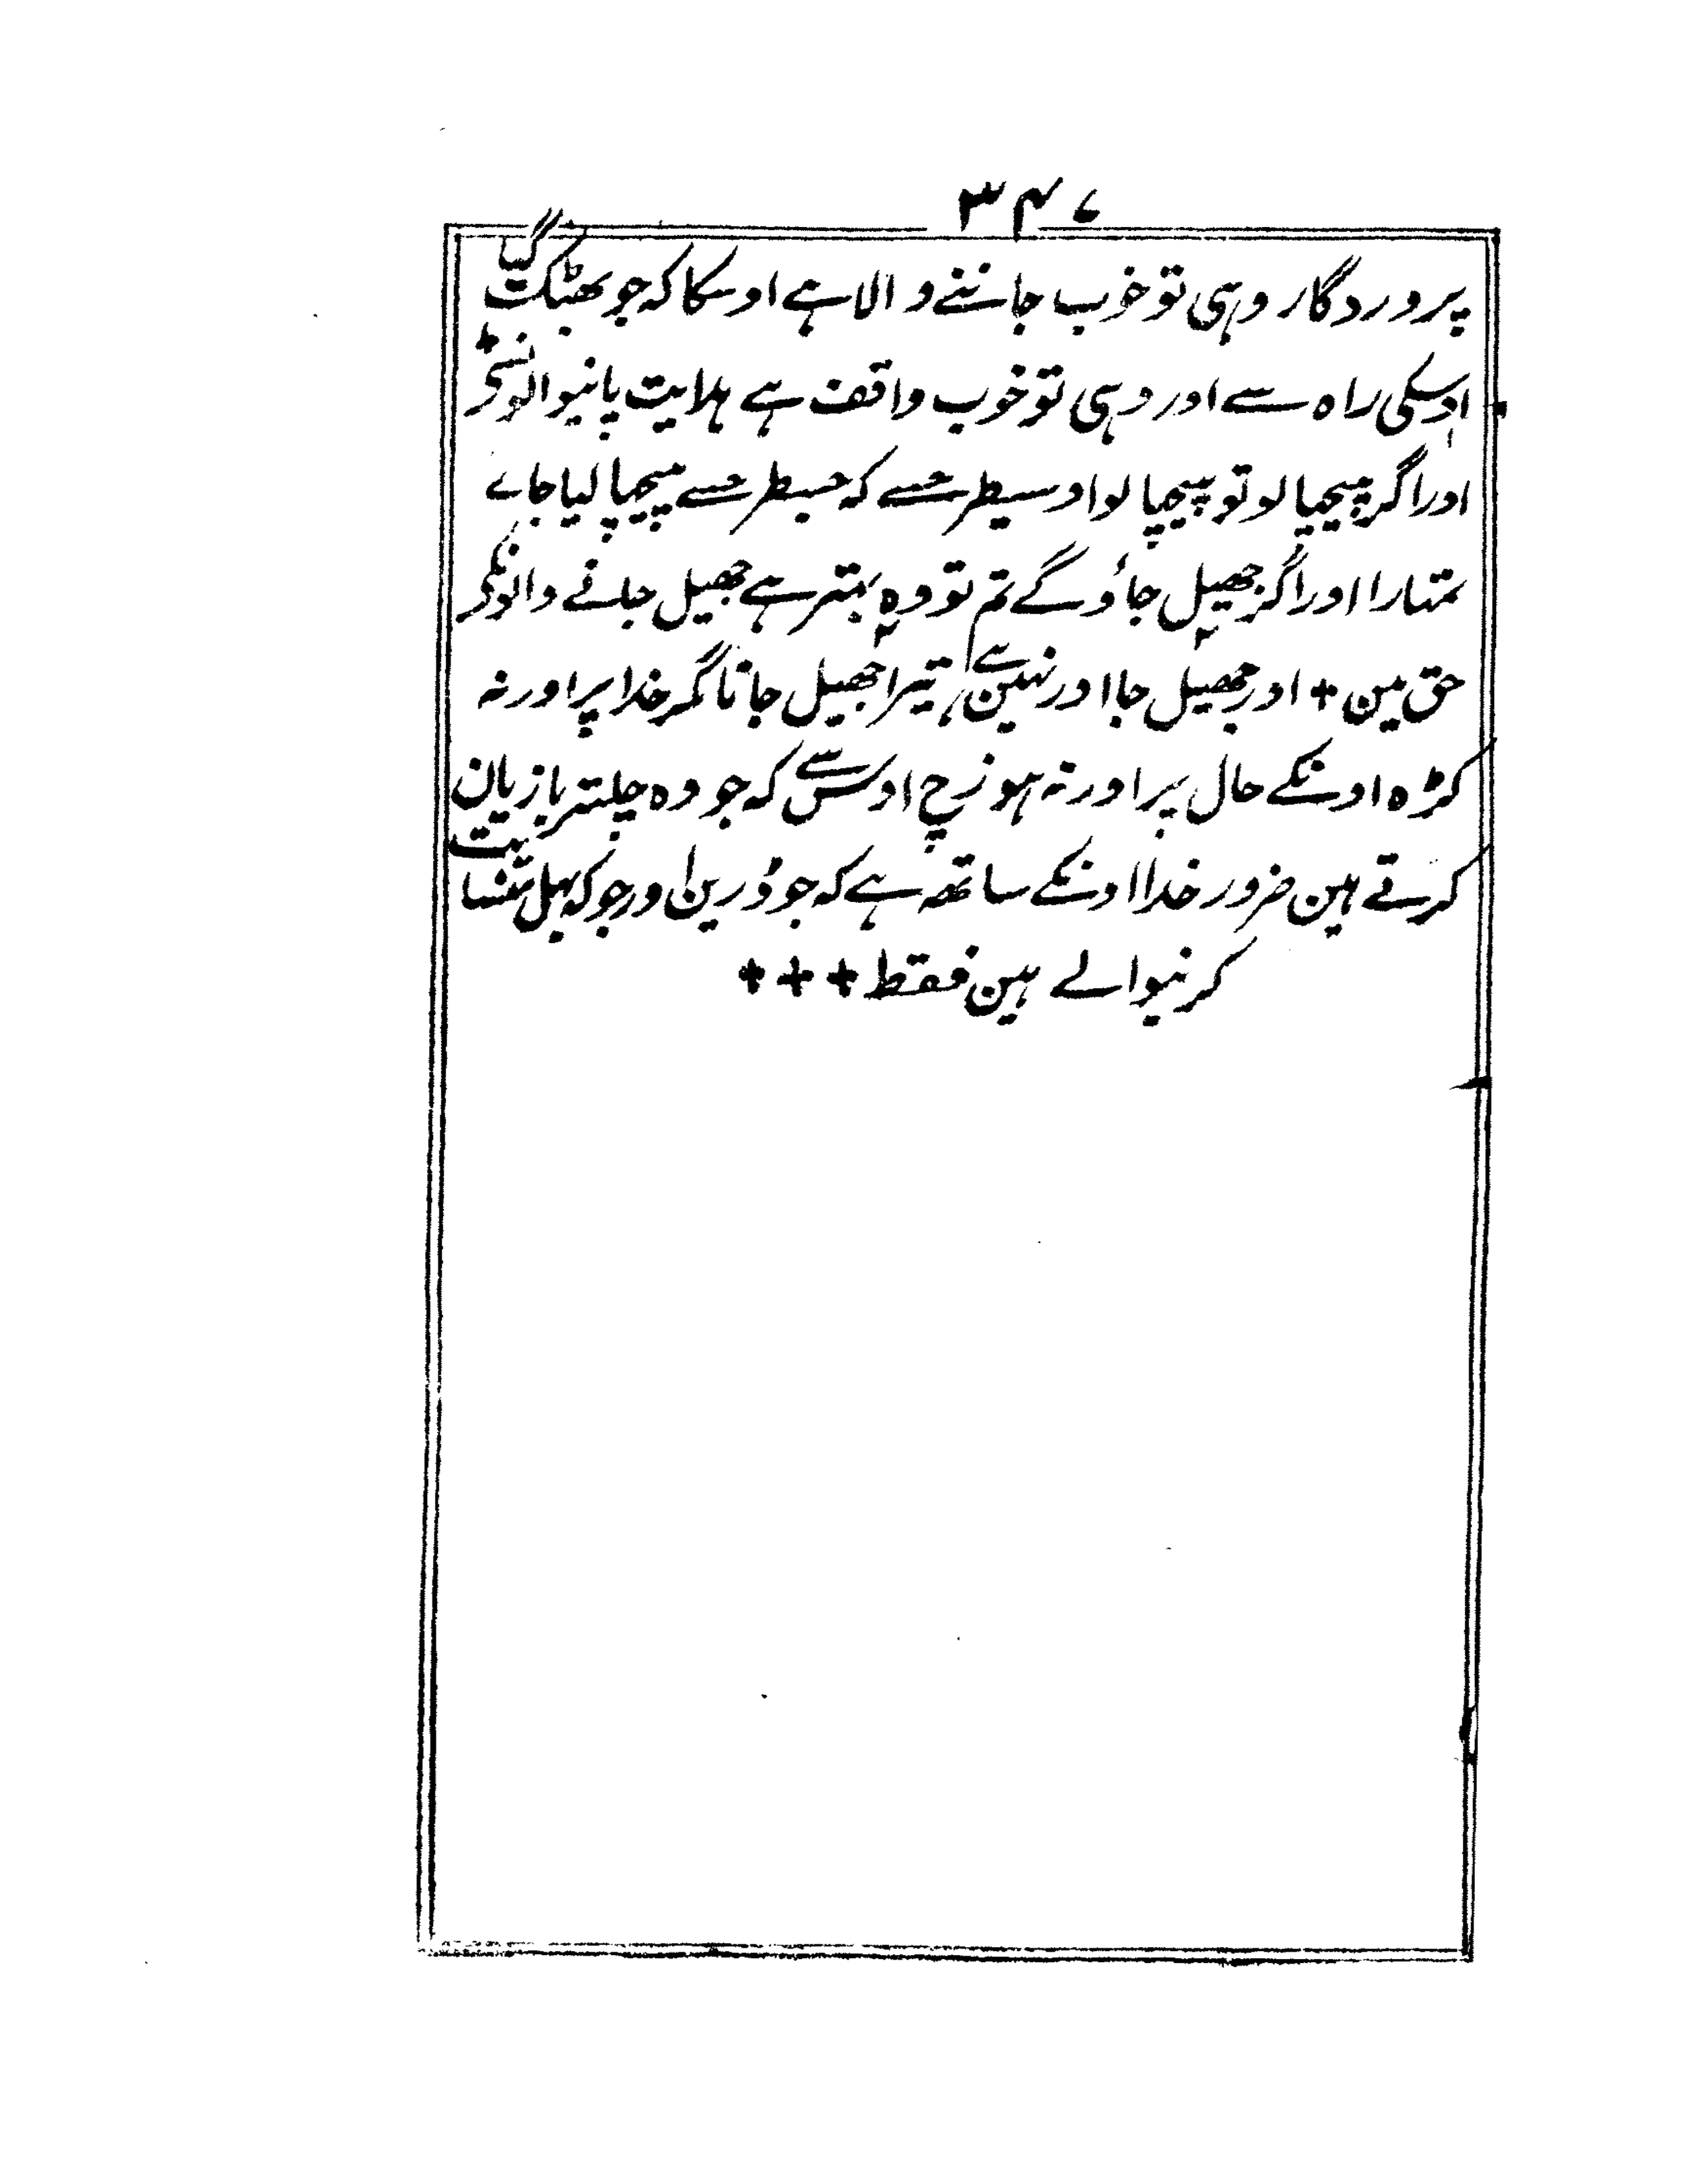 ۳۴۷
پروردگار وہی تو خوب جاننے والا ہے اوسکا کہ جو بھٹک گیا
اوسکی راہ سے اور وہی تو خوب واقف ہے ہدایت پانیوالونسے +
اور اگر پیچھا لو تو پیچھا لو اوسیطرحسے کہ جسطرحسے پیچھا لیا جاے
تمہارا اور اگر جھیل جاؤگے تم تو وہ بہتر ہے جھیل جانے والونکے
حق مین + اور جھیل جا اور نہین ہے تیرا جھیل جانا مگر خدا پر اور نہ
کڑہ اونکے حال پر اور نہ ہو زچ اوس سے کہ جو وہ چلتر بازیان
کرتے ہین ضرور خدا اونکے ساتھہ ہے کہ جو ڈرین اور جو کہ بہل منسایت
کرنیوالے ہین فقط + + +